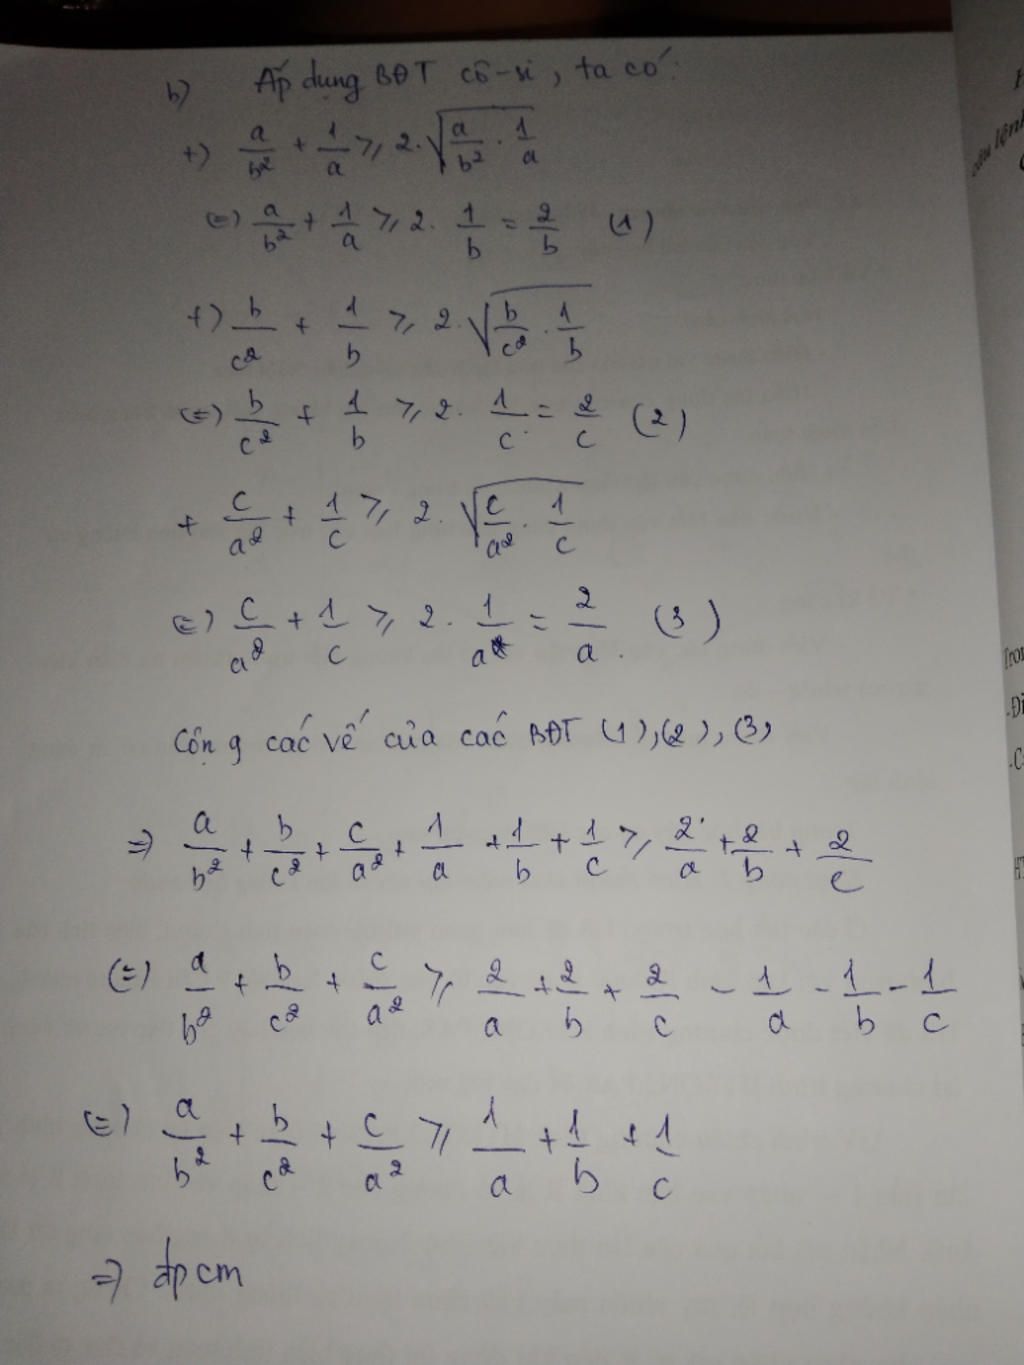 b) Áp dụng BĐT cô-si, ta có:
+) a/b² + 1/a ≥ 2.√(a/b² . 1/a)
(=) a/b² + 1/a ≥ 2. 1/b = 2/b (1)
+) b/c² + 1/b ≥ 2.√(b/c² . 1/b)
(=) b/c² + 1/b ≥ 2. 1/c = 2/c (2)
+ c/a² + 1/c ≥ 2.√(c/a² . 1/c)
(=) c/a² + 1/c ≥ 2. 1/a = 2/a. (3)
Cộng các vế của các BĐT (1),(2),(3)
=) a/b² + b/c² + c/a² + 1/a + 1/b + 1/c ≥ 2/a + 2/b + 2/c
(=) a/b² + b/c² + c/a² ≥ 2/a + 2/b + 2/c - 1/a - 1/b - 1/c
(=) a/b² + b/c² + c/a² ≥ 1/a + 1/b + 1/c
=) đpcm
câu lệnh